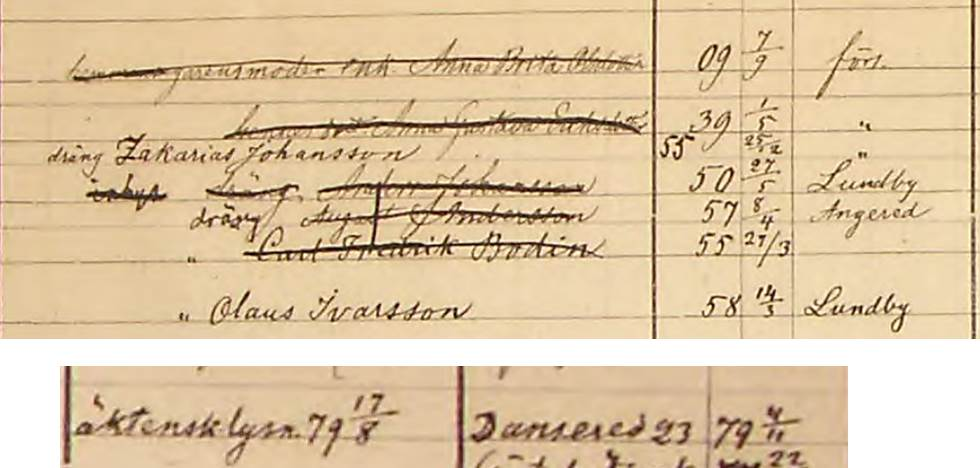 enk. Anna Brita Olsdotter 09 7/9 förs.
Anna Gustava 39 1/5 "
dräng Zakarias Johansson 55 25/12 "
dräng Anders Johansson 50 27/5 Lundby
dräng August J Andersson 57 8/4 Angered
" Carl Fredrik Bodin 55 27/3
" Olaus Ivarsson 58 14/3 Lundby
äktensk lysn. 79 17/8 Dansered 23 79 4/11